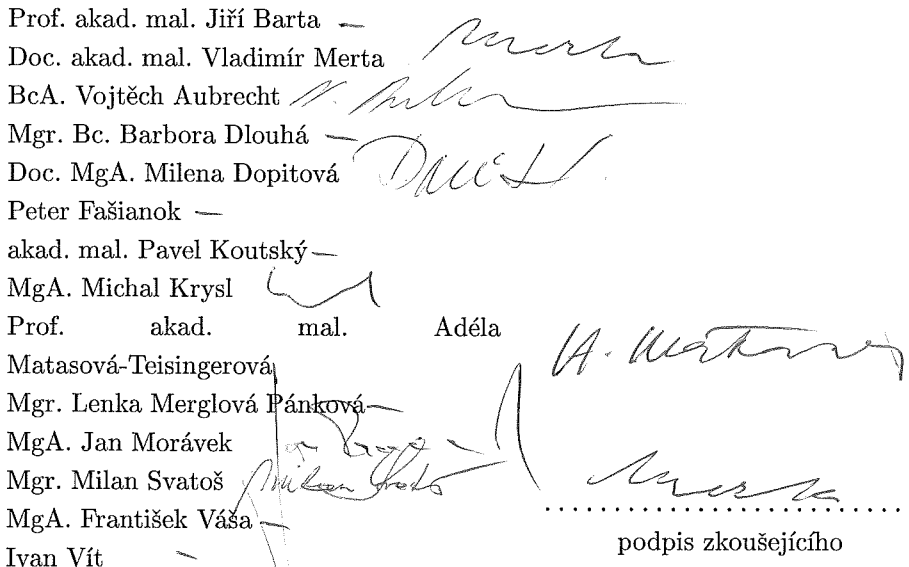 Prof. akad. mal. Jiří Barta —
Doc. akad. mal. Vladimír Merta Merta
BcA. Vojtěch Aubrecht
Mgr. Bc. Barbora Dlouhá —
Doc. MgA. Milena Dopitová
Peter Fašianok —
akad. mal. Pavel Koutský —
MgA. Michal Krysl
Prof. akad. mal. Adéla
Matasová-Teisingerová
Mgr. Lenka Merglová Pánková —
MgA. Jan Morávek
Mgr. Milan Svatoš Milan Svatoš
MgA. František Váša —
Ivan Vít —
Merta
podpis zkoušejícího